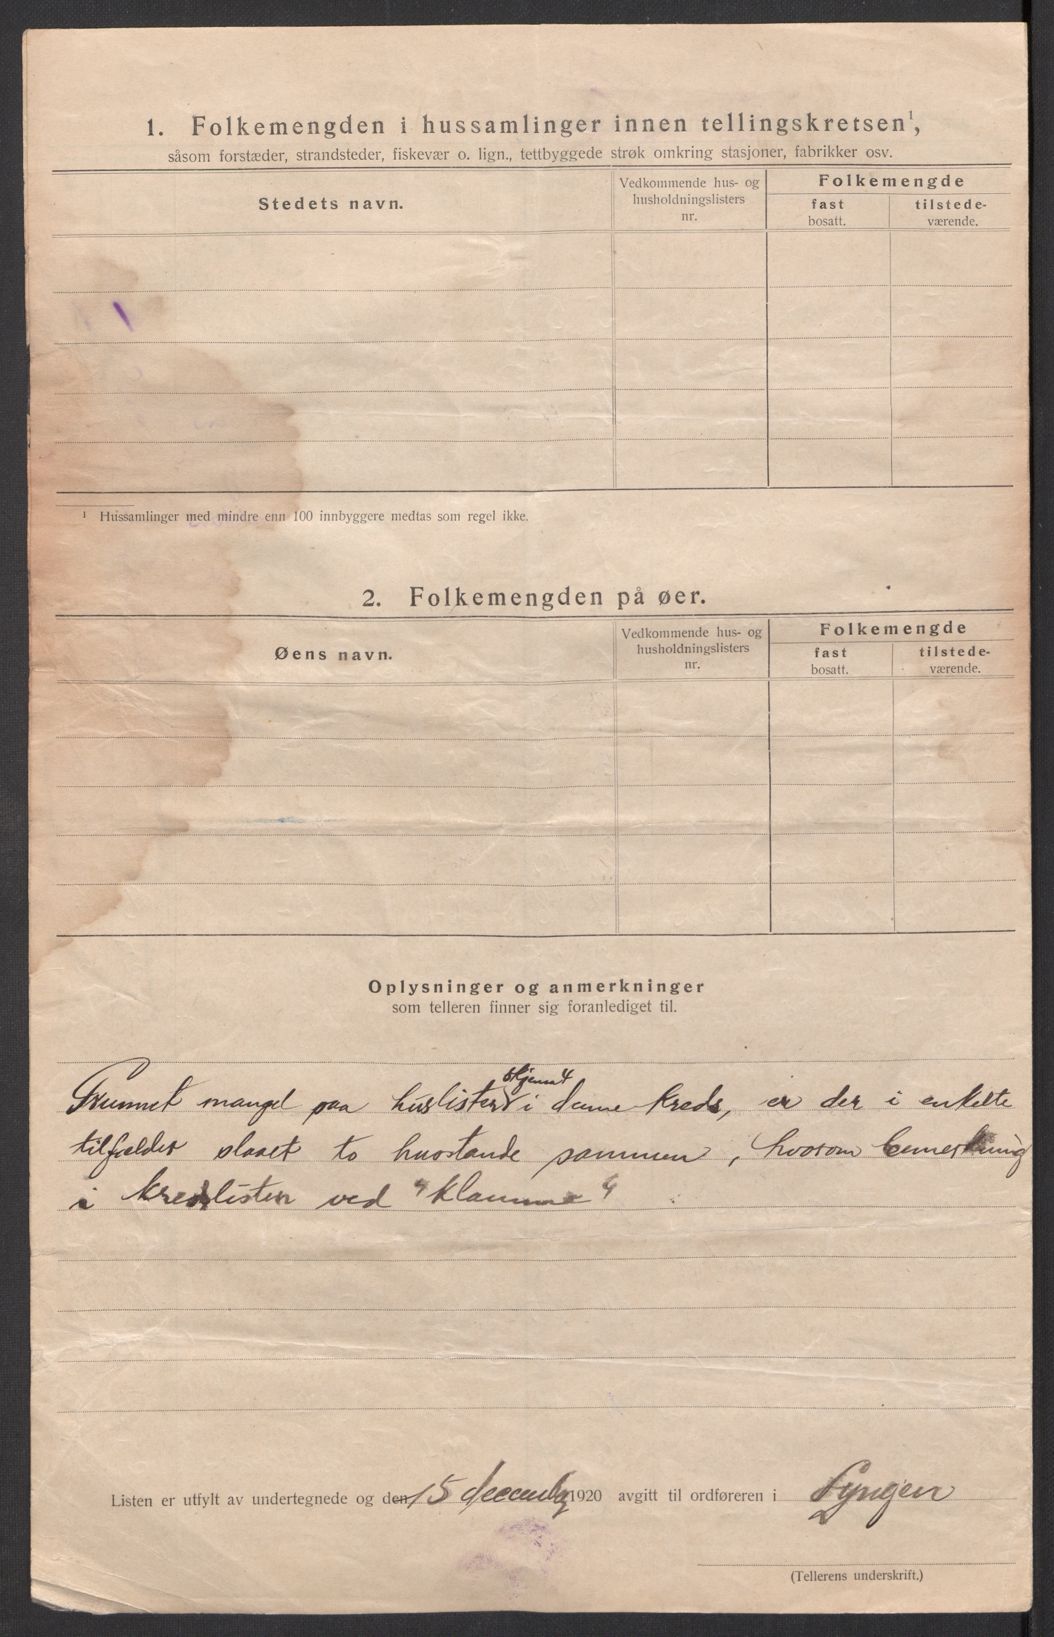 1. Folkemengden i hussamlinger innen tellingskretsen¹,
såsom forstæder, strandsteder, fiskevær o. lign., tettbyggede strøk omkring stasjoner, fabrikker osv.
Stedets navn.
Vedkommende hus- og
husholdningslisters
nr.
Folkemengde
fast
bosatt.
tilstede-
værende.
¹ Hussamlinger med mindre enn 100 innbyggere medtas som regel ikke.
2. Folkemengden på øer.
Øens navn.
Vedkommende hus- og
husholdningslisters
nr.
Folkemengde
fast
bosatt.
tilstede-
værende.
Oplysninger og anmerkninger
som telleren finner sig foranlediget til.
Grunnet mangel paa huslister i denne kreds, er der i enkelte
tilfælder slaaet to husstande sammen, hvorom bemerkning
i kredslisten ved "klamme"
Listen er utfylt av undertegnede og den 15 decemb 1920 avgitt til ordføreren i Lyngen
(Tellerens underskrift.)